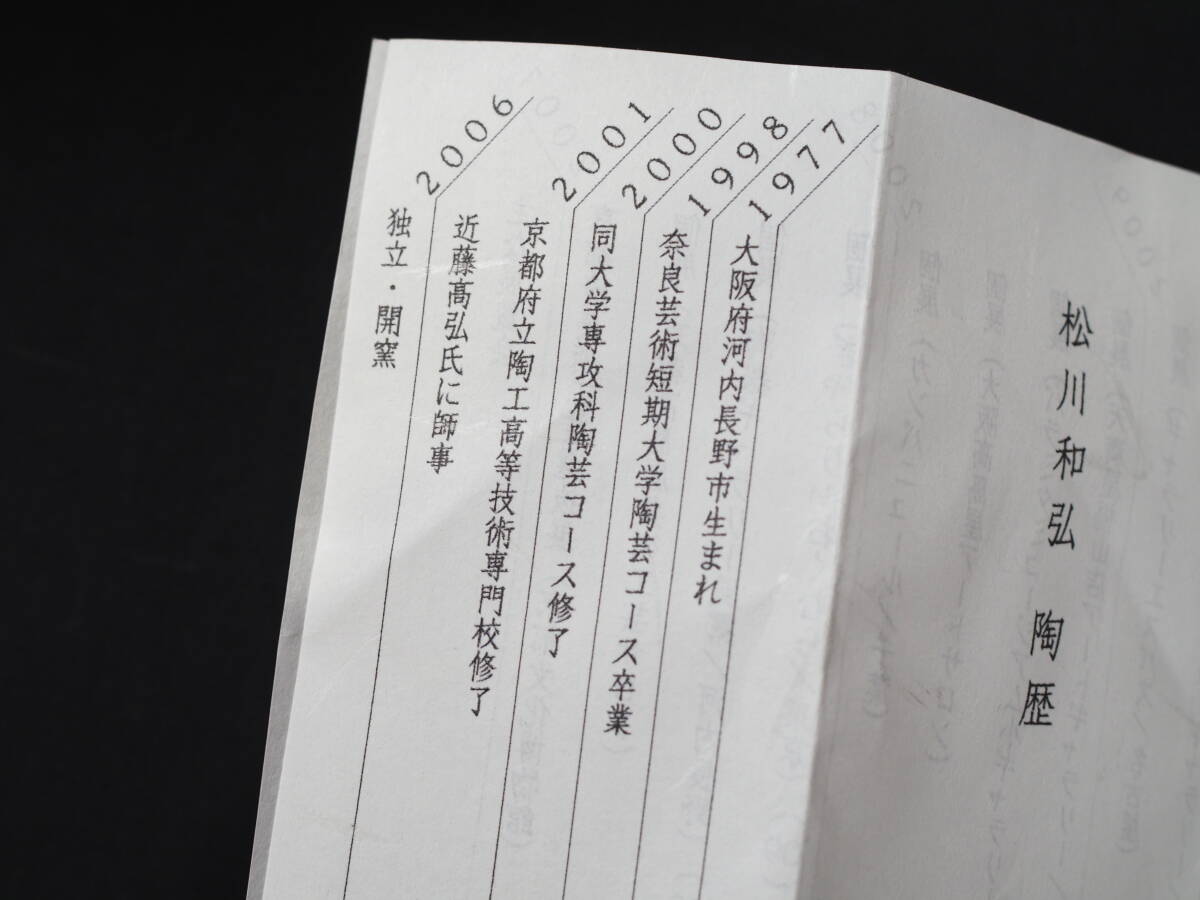 松川和弘 陶歴
1977
大阪府河内長野市生まれ
1998
奈良芸術短期大学陶芸コース卒業
2000
同大学専攻科陶芸コース修了
2001
京都府立陶工高等技術専門校修了
近藤髙弘氏に師事
2006
独立・開窯